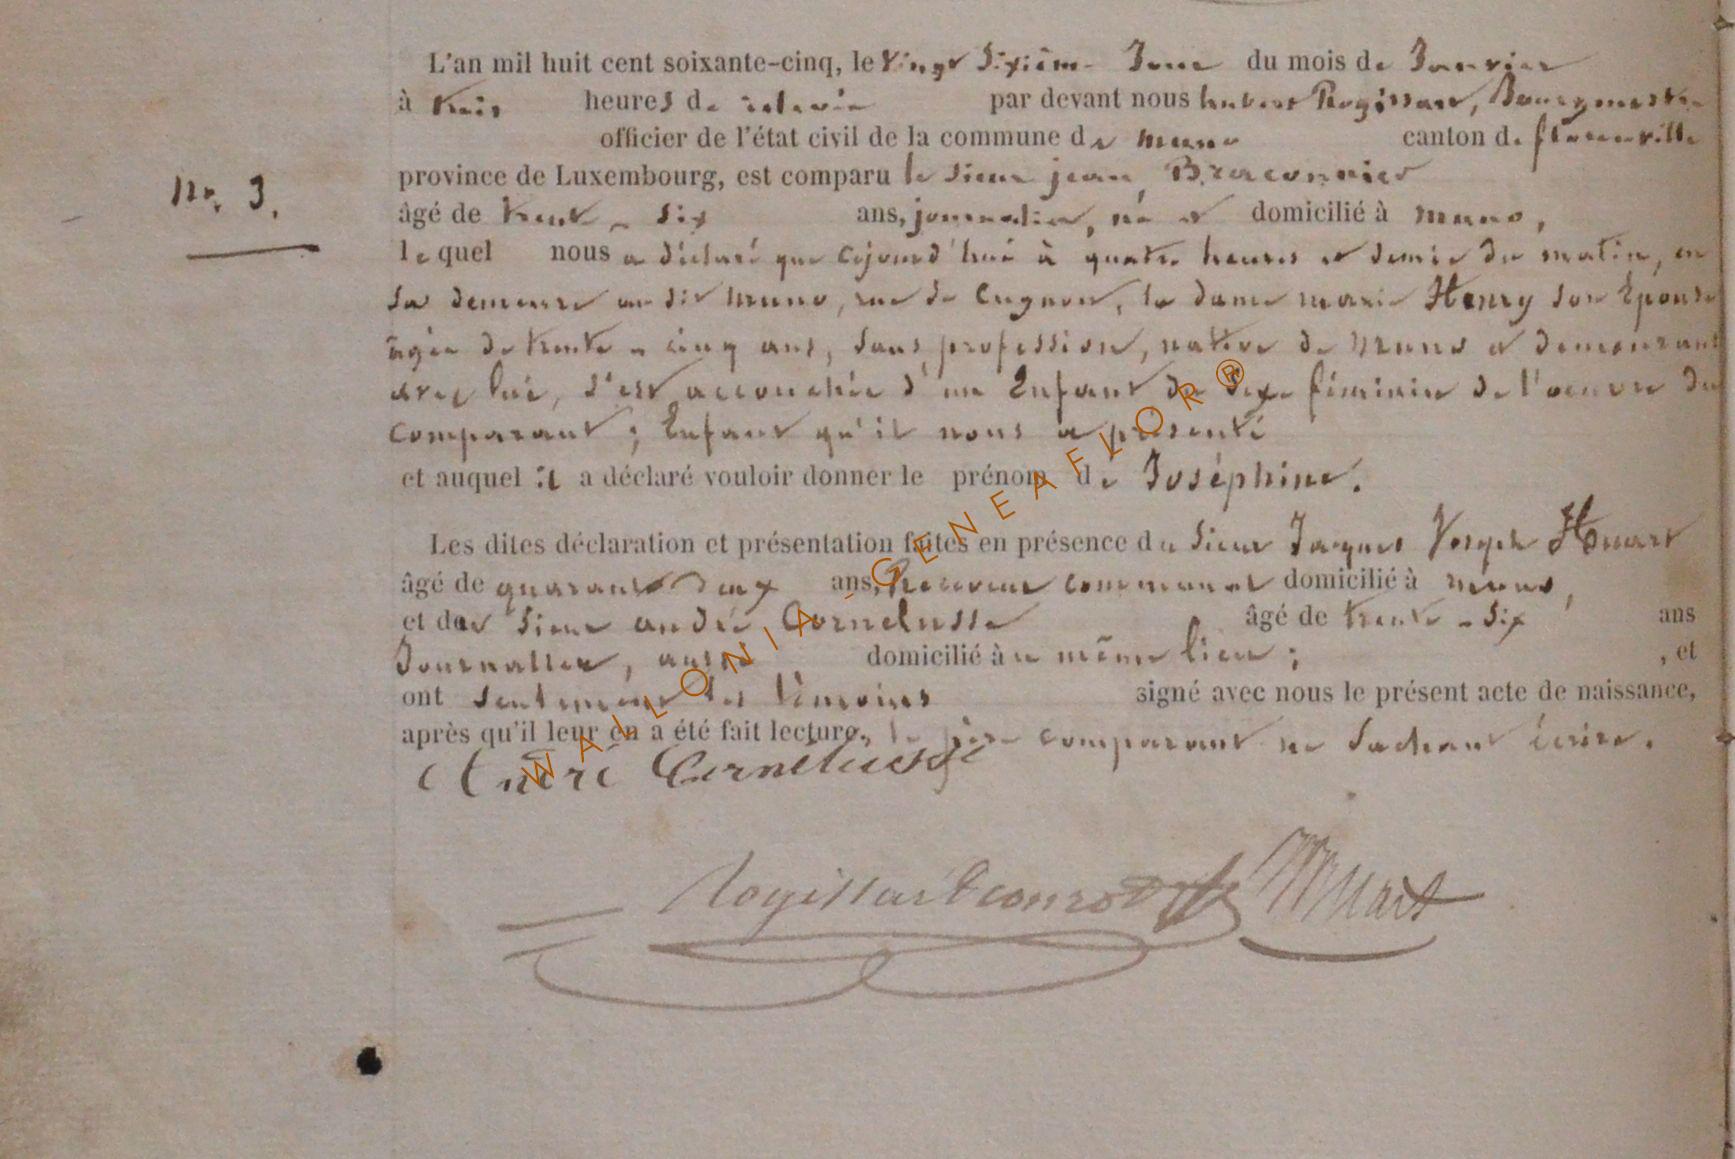 L'an mil huit cent soixante-cinq, le vingt sixième Jour du mois de Janvier
à trois heures de relevée par devant nous hubert Rogissart, Bourgmestre
officier de l'état civil de la commune de muno canton de florenville
Nr. 3.
province de Luxembourg, est comparu le sieur jean Braconnier
âgé de trente-six ans, journalier, né et domicilié à muno,
lequel nous a déclaré que cejourd'hui à quatre heures et demie du matin, en
sa demeure au dit muno, rue de Cugnon, la dame marie Henry son Epouse
âgée de trente-cinq ans, sans profession, native de muno et demeurant
avec lui, s'est accouchée d'un Enfant de sexe féminin de l'oeuvre du
comparant; Enfant qu'il nous a présenté
et auquel il a déclaré vouloir donner le prénom de Joséphine.
Les dites déclaration et présentation faites en présence du sieur Jacques Joseph Huart
âgé de quarante deux ans, Receveur communal domicilié à muno,
et du sieur andré Cornelusse âgé de trente-six ans
Journalier, aussi domicilié à u même lieu; , et
ont seulement les témoins signé avec nous le présent acte de naissance,
après qu'il leur en a été fait lecture, le père comparant ne sachant écrire.
André Cornelusse
Rogissart Huart
WALLONIA-GENEAFLOR®